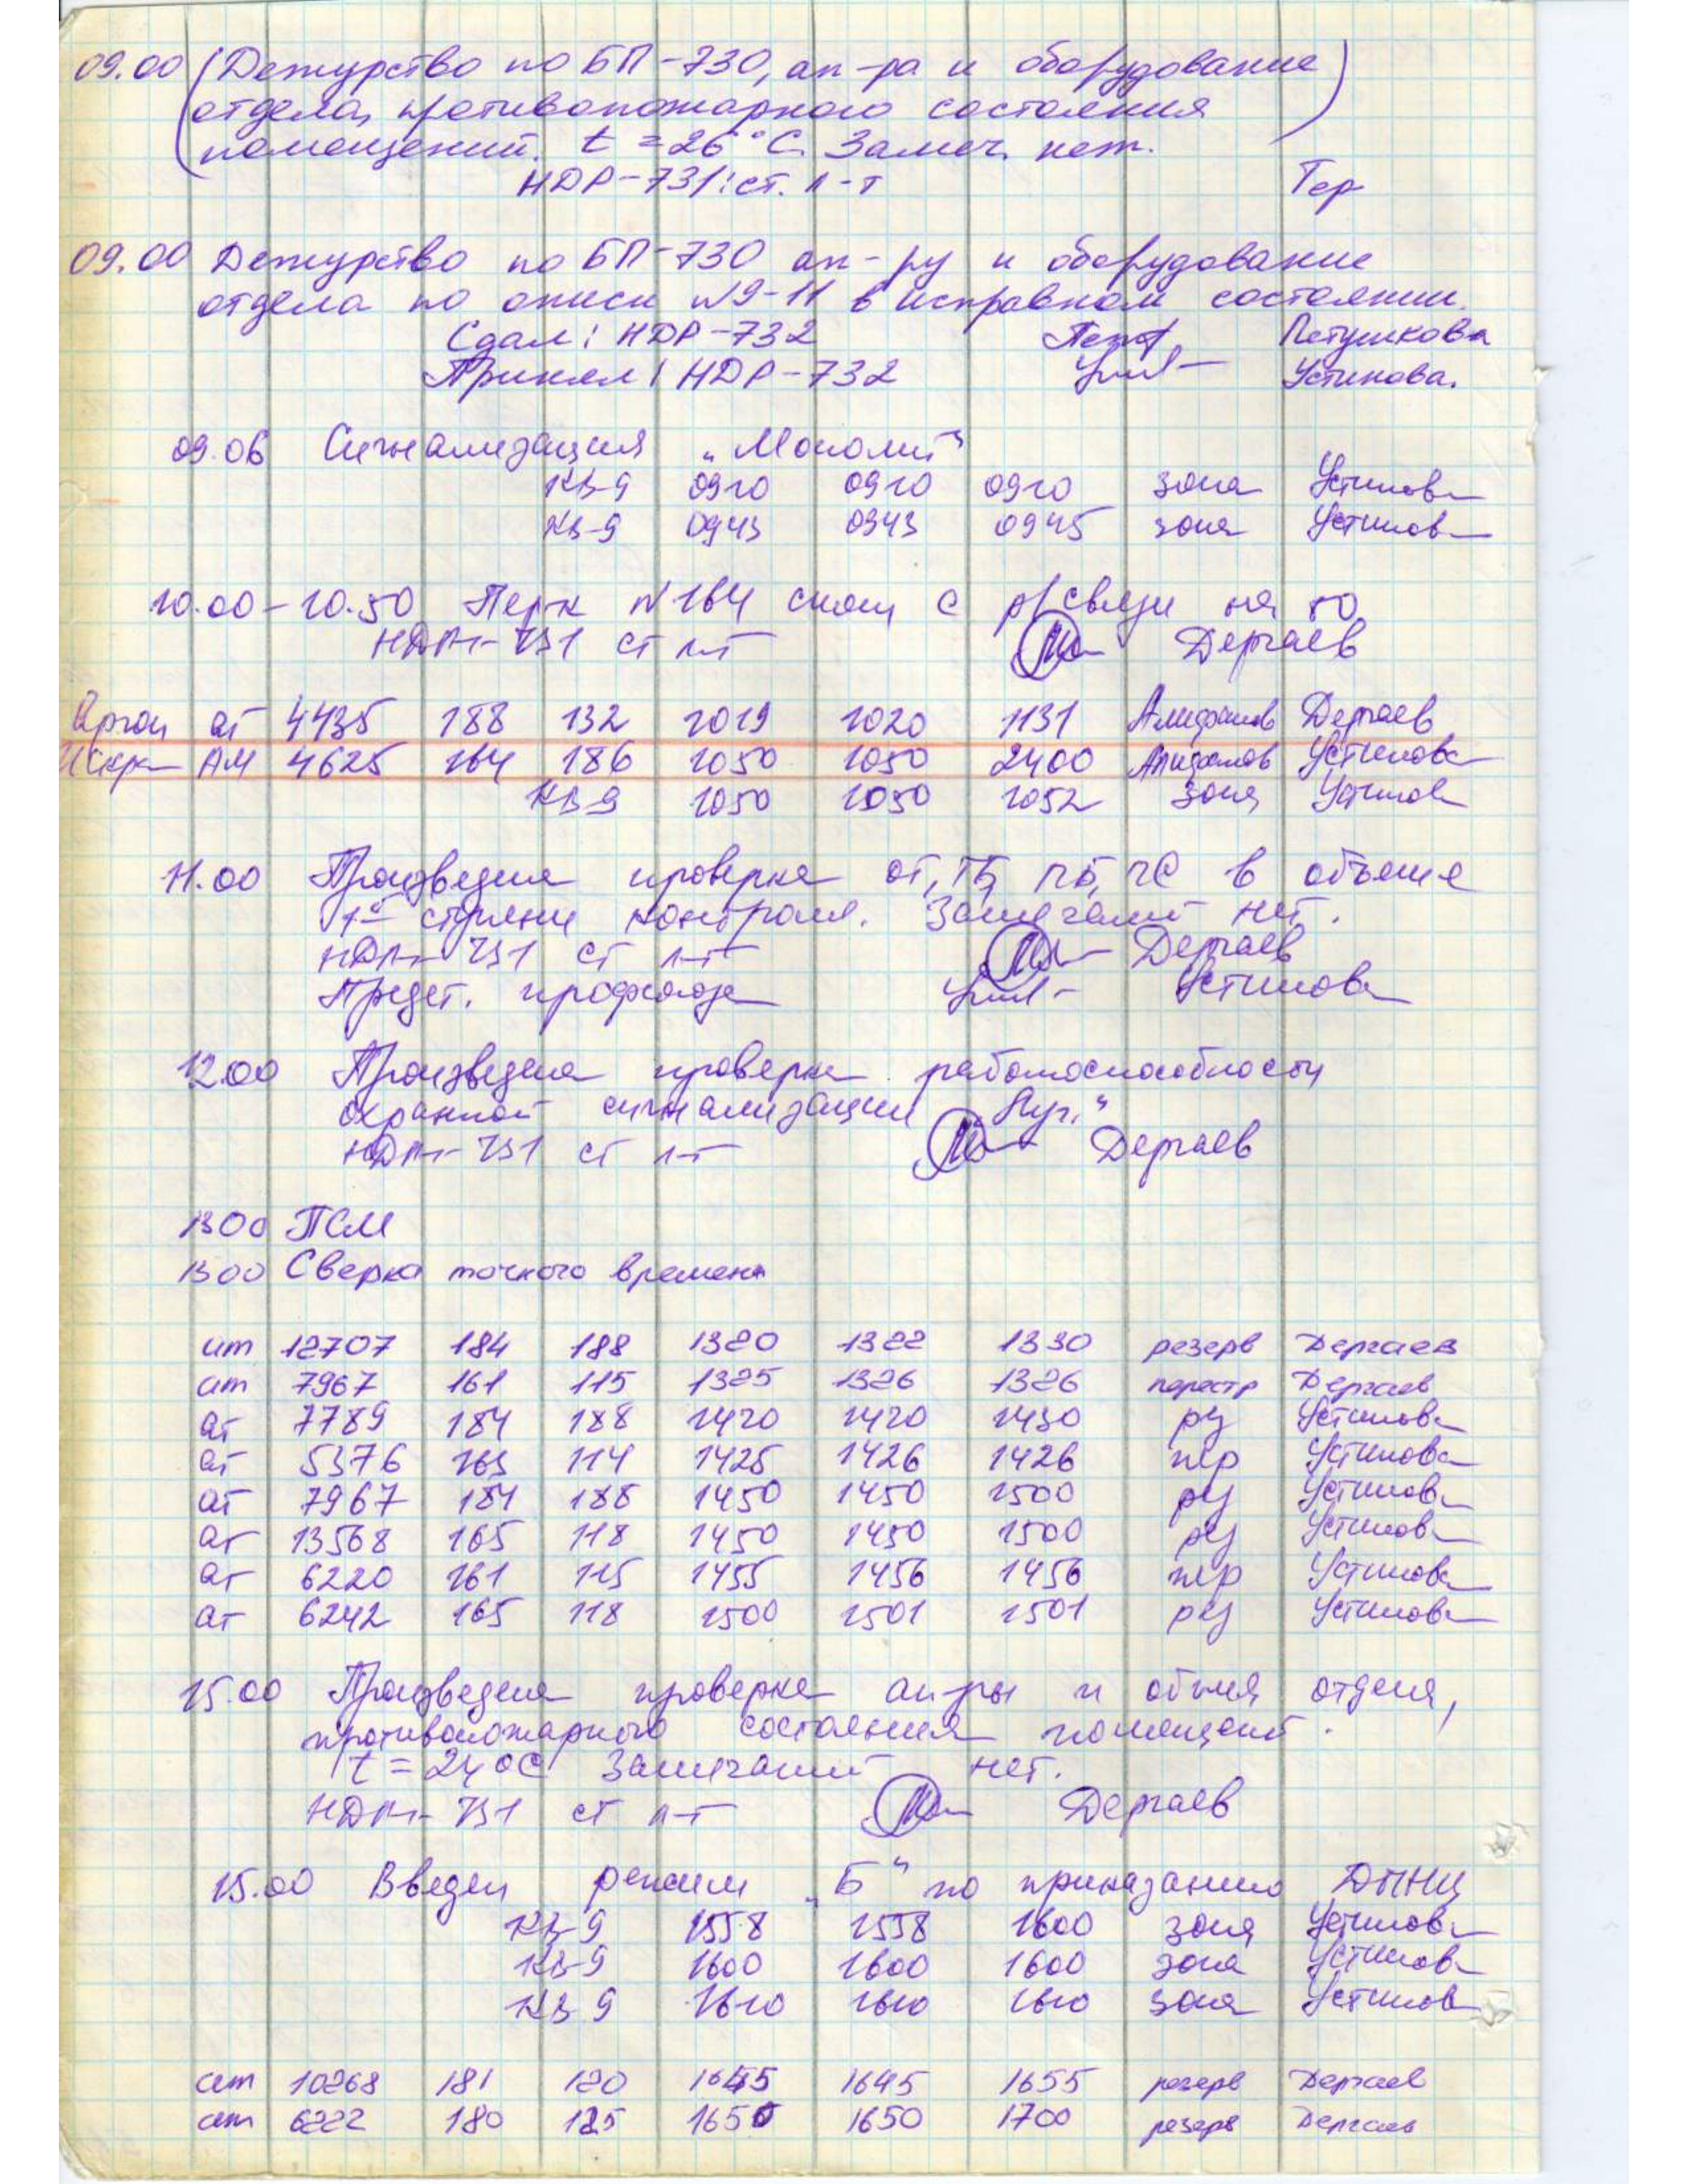 09.00 (Дежурство по БП-730, ап-ра и оборудование
отдела, противопожарного состояния
помещений. t = 26°С. Замеч. нет.)
НДР-731: ст. л-т Тер
09.00 Дежурство по БП-730 ап-ру и оборудование
отдела по описи №9-11 в исправном состоянии.
Сдал: НДР-732 Петушкова
Принял: НДР-732 Устинова.
09.06 Сигнализация „Монолит"
КВ-9 0910 0910 0910 зона Устинова
КВ-9 0943 0943 0945 зона Устинова
10.00-10.50 №164 с р/связи на
НДР-731 ст л-т Дергаев
Аргон ат 4435 188 132 1019 1020 1131 Дергаев
Искра АМ 4625 164 186 1050 1050 2400 Устинова
КВ-9 1050 1050 1052 зона Устинов
11.00 Произведена проверка ОТ, ТБ, ПБ, ЧС в объеме
1ой ступени контроля. Замечаний нет.
НДР-731 ст л-т Дергаев
Предст. профсоюза Устинова
12.00 Произведена проверка работоспособности
охранной сигнализации „Луч"
НДР-731 ст л-т Дергаев
1300 ПСМ
1300 Сверка точного времени
ат 12707 184 188 1320 1322 1330 резерв Дергаев
ат 7967 161 115 1325 1326 1326 перестр Дергаев
ат 7789 184 188 1420 1420 1430 рез Устинова
ат 5376 163 114 1425 1426 1426 пер Устинова
ат 7967 184 188 1450 1450 1500 рез Устинова
ат 13568 165 118 1450 1450 1500 рез Устинова
ат 6220 161 115 1455 1456 1456 пер Устинова
ат 6242 165 118 1500 1501 1501 рез Устинова
15.00 Произведена проверка ап-ры и об-ния отдела,
противопожарного состояния помещений.
t = 24°С Замечаний нет.
НДР-731 ст л-т Дергаев
15.00 Введен режим „Б" по приказанию ДПНЦ
КВ-9 1558 1558 1600 зона Устинова
КВ-9 1600 1600 1600 зона Устинова
КВ-9 1610 1610 1610 зона Устинов
ат 10268 181 120 1645 1645 1655 резерв Дергаев
ат 6222 180 125 1650 1650 1700 резерв Дергаев